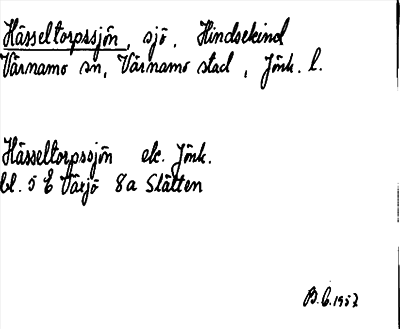 Hässeltorpssjön, sjö, Hindsekind
Värnamo sn, Värnamo stad, Jönk. l.
Hässeltorpssjön ek. Jönk.
bl. 5 E Växjö 8a Slätten
B.C. 1957